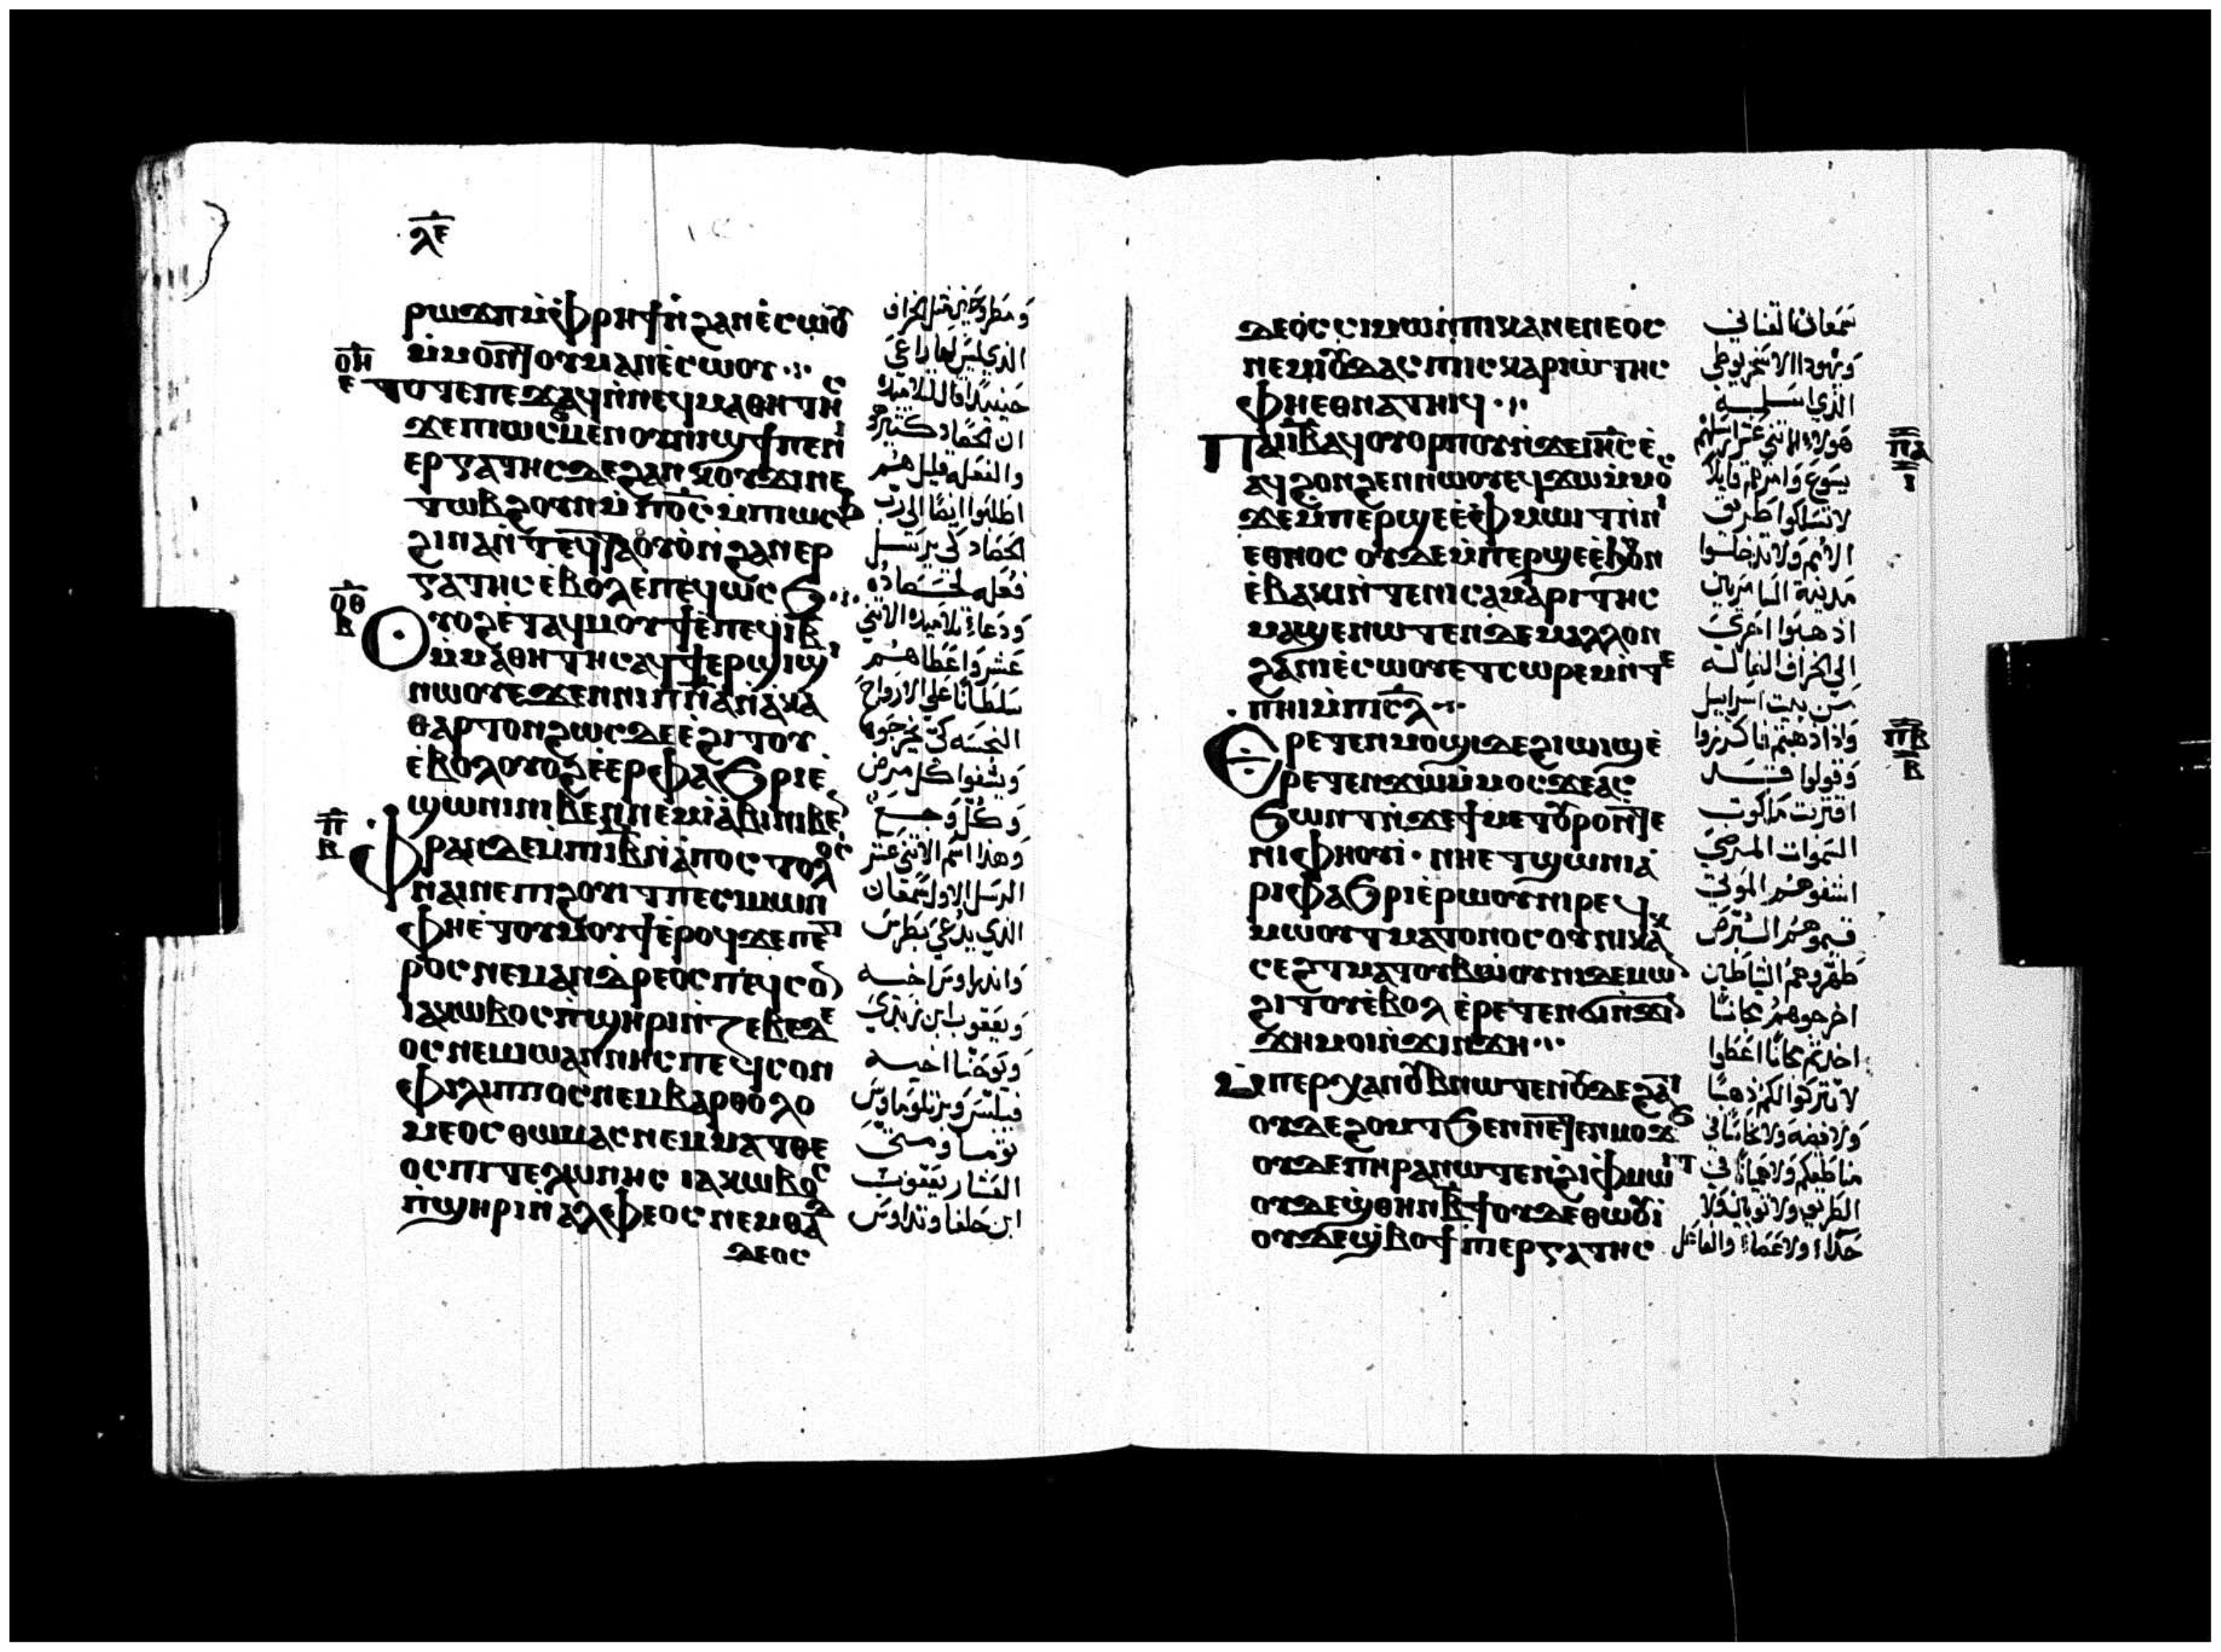 ⲗⲉ
ⲣⲱϫⲡ ⲙ̀ⲫⲣⲏϯ ⲛ̀ϩⲁⲛⲉ̀ⲥⲱⲟⲩ
ⲙ̀ⲙⲟⲛ ⲙⲁⲛⲉ̀ⲥⲱⲟⲩ
ⲟⲏ
ⲉ
ⲧⲟⲧⲉ ⲡⲉϫⲁϥ ⲛ̀ⲛⲉϥⲙⲁⲑⲏⲧⲏⲥ
ϫⲉ ⲡⲓⲱⲥϧ ⲙⲉⲛ ⲟⲩⲛⲓϣϯ ⲡⲉ ⲛⲓ
ⲉⲣⲅⲁⲧⲏⲥ ⲇⲉ ϩⲁⲛⲕⲟⲩϫⲓ ⲛⲉ
ⲧⲱⲃϩ ⲟⲩⲛ ⲙ̀ⲡⲟ̅ⲥ̅ ⲙ̀ⲡⲓⲱⲥϧ
ϩⲓⲛⲁ ⲛ̀ⲧⲉϥⲧⲁⲟⲩⲟ ⲛ̀ϩⲁⲛⲉⲣ
ⲅⲁⲧⲏⲥ ⲉ̀ⲃⲟⲗ ⲉ̀ⲡⲉϥⲱⲥϧ
ⲟⲑ
ⲃ
ⲟⲩⲟϩ ⲉ̀ⲧⲁϥⲙⲟⲩϯ ⲉ̀ⲡⲉϥⲓ̅ⲃ̅
ⲙ̀ⲙⲁⲑⲏⲧⲏⲥ ⲁϥϯ ⲉⲣϣⲓϣⲓ
ⲛⲱⲟⲩ ⲉϫⲉⲛ ⲛⲓⲡ̅ⲛ̅ⲁ̅ ⲛ̀ⲁⲕⲁ
ⲑⲁⲣⲧⲟⲛ ϩⲱⲥⲇⲉ ⲉ̀ϩⲓⲧⲟⲩ
ⲉ̀ⲃⲟⲗ ⲟⲩⲟϩ ⲉ̀ⲉⲣⲫⲁϧⲣⲓ ⲉ̀
ϣⲱⲛⲓ ⲛⲓⲃⲉⲛ ⲛⲉⲙ ⲓⲁⲃⲓ ⲛⲓⲃⲉⲛ
ⲡ
ⲃ
ⲫⲣⲁⲛ ⲇⲉ ⲙ̀ⲡⲓⲓ̅ⲃ̅ ⲛ̀ⲁⲡⲟⲥⲧⲟⲗⲟⲥ
ⲛⲁⲓ ⲛⲉ ⲡⲓϩⲟⲩⲓⲧ ⲡⲉ ⲥⲓⲙⲱⲛ
ⲫⲏⲉ̀ⲧⲟⲩⲙⲟⲩϯ ⲉ̀ⲣⲟϥ ϫⲉ ⲡⲉⲧ
ⲣⲟⲥ ⲛⲉⲙ ⲁⲛⲇⲣⲉⲟⲥ ⲡⲉϥⲥⲟⲛ
ⲓⲁⲕⲱⲃⲟⲥ ⲡ̀ϣⲏⲣⲓ ⲛ̀ⲍⲉⲃⲉⲇⲉ
ⲟⲥ ⲛⲉⲙ ⲓⲱⲁⲛⲛⲏⲥ ⲡⲉϥⲥⲟⲛ
ⲫⲓⲗⲓⲡⲡⲟⲥ ⲛⲉⲙ ⲃⲁⲣⲑⲟⲗⲟ
ⲙⲉⲟⲥ ⲑⲱⲙⲁⲥ ⲛⲉⲙ ⲙⲁⲧⲑⲉ
ⲟⲥ ⲡⲓⲧⲉⲗⲱⲛⲏⲥ ⲓⲁⲕⲱⲃⲟⲥ
ⲡ̀ϣⲏⲣⲓ ⲛ̀ⲁⲗⲫⲉⲟⲥ ⲛⲉⲙ ⲑⲁⲇ
ⲇⲉⲟⲥ
ومطروحين مثل الخراف
الذي ليس لها راعي
حينيدا قال لتلاميذه
ان الحصاد كثير
والفعله قليل هم
اطلبوا ايضا الى رب
الحصاد كي يرسل
فعله لحصاده
ودعا تلاميذه الاثني
عشر واعطاهم
سلطانا على الارواح
النجسه كي يخرجوه
ويشفوا كل مرض
وكل وجع
وهذا اسم الاثني عشر
الرسل الاول سمعان
الذي يدعى بطرس
واندراوس اخيه
ويعقوب ابن زبدي
ويوحنا اخيه
فيلبس وبرتلوماوس
توما ومتى
العشار يعقوب
ابن حلفا وتداوس
ⲇⲉⲟⲥ ⲥⲓⲙⲱⲛ ⲡⲓⲕⲁⲛⲉⲛⲉⲟⲥ
ⲛⲉⲙ ⲓⲟⲩⲇⲁⲥ ⲡⲓⲥⲕⲁⲣⲓⲱⲧⲏⲥ
ⲫⲏⲉⲑⲛⲁⲧⲏⲓϥ
ⲡⲁⲓⲓ̅ⲃ̅ ⲁϥⲟⲩⲟⲣⲡⲟⲩ ⲛ̀ϫⲉ ⲓⲏ̅ⲥ̅ ⲉ̀
ⲁϥϩⲟⲛϩⲉⲛ ⲛⲱⲟⲩ ⲉϥϫⲱ ⲙ̀ⲙⲟⲥ
ϫⲉ ⲙ̀ⲡⲉⲣϣⲉ ⲉ̀ⲫⲙⲱⲓⲧ ⲛ̀ⲛⲓ
ⲉⲑⲛⲟⲥ ⲟⲩⲇⲉ ⲙ̀ⲡⲉⲣϣⲉ ⲉ̀ϧⲟⲩⲛ
ⲉ̀ⲃⲁⲕⲓ ⲛ̀ⲧⲉ ⲛⲓⲥⲁⲙⲁⲣⲓⲧⲏⲥ
ⲙⲁϣⲉⲛⲱⲧⲉⲛ ⲇⲉ ⲙⲁⲗⲗⲟⲛ
ϩⲁ ⲛⲓⲉ̀ⲥⲱⲟⲩ ⲉⲧⲥⲱⲣⲉⲙ ⲛ̀ⲧⲉ
ⲡⲏⲓ ⲙ̀ⲡⲓⲥ̅ⲗ̅
ⲉⲣⲉⲧⲉⲛⲙⲟϣⲓ ⲇⲉ ϩⲓⲱⲓϣ ⲉ̀
ⲣⲉⲧⲉⲛϫⲱ ⲙ̀ⲙⲟⲥ ϫⲉ ⲁⲥ
ϧⲱⲛⲧ ⲛ̀ϫⲉ ϯⲙⲉⲧⲟⲩⲣⲟ ⲛ̀ⲧⲉ
ⲛⲓⲫⲏⲟⲩⲓ ⲛⲏⲉⲧϣⲱⲛⲓ ⲁ
ⲣⲓⲫⲁϧⲣⲓ ⲉ̀ⲣⲱⲟⲩ ⲛⲓⲣⲉϥ
ⲙⲱⲟⲩⲧ ⲙⲁⲧⲟⲩⲛⲟⲥⲟⲩ ⲛⲓⲕⲁⲕ
ⲥⲉϩⲧ ⲙⲁⲧⲟⲩⲃⲱⲟⲩ ⲛⲓⲇⲉⲙⲱⲛ
ϩⲓⲧⲟⲩ ⲉ̀ⲃⲟⲗ ⲉ̀ⲣⲉⲧⲉⲛϭⲓ ⲛ̀ϫⲓⲛ
ϫⲏ ⲙⲟⲓ ⲛ̀ϫⲓⲛϫⲏ
ⲙ̀ⲡⲉⲣⲭⲁ ⲛⲟⲩⲃ ⲛⲱⲧⲉⲛ ⲟⲩⲇⲉ ϩⲁⲧ
ⲟⲩⲇⲉ ϩⲟⲙⲧ ϧⲉⲛ ⲛⲉⲧⲉⲛⲙⲟϫϧ
ⲟⲩⲇⲉ ⲡⲏⲣⲁ ⲛⲱⲧⲉⲛ ϩⲓ ⲫⲙⲱⲓⲧ
ⲟⲩⲇⲉ ϣⲑⲏⲛ ⲃϯ ⲟⲩⲇⲉ ⲑⲱⲟⲩⲓ
ⲟⲩⲇⲉ ϣⲃⲟⲧ ⲡⲓⲉⲣⲅⲁⲧⲏⲥ
ⲡⲁ
ⲓ
ⲡⲃ
ⲃ
سمعان القناني
ويهودا الاسخريوطي
الذي اسلمه
هولاء الاثني عشر ارسلهم
يسوع وامرهم قايلا
لا تسلكوا طريق
الامم ولا تدخلوا
مدينة السامريين
اذهبوا احرى
الى الخراف الضاله
من بيت اسراييل
واذا ذهبتم فاكرزوا
وقولوا قد
اقتربت ملكوت
السموات المرضى
اشفوهم الموتى
قيموهم البرص
طهروهم الشياطين
اخرجوهم مجانا
اخذتم مجانا اعطوا
لا تتركوا لكم ذهبا
ولا فضه ولا نحاسا في
مناطقكم ولا هميانا في
الطريق ولا ثوبان ولا
حذاء ولا عصاء والفاعل